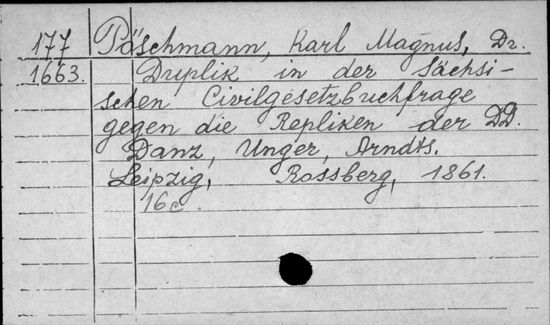 177 Pöschmann, Karl Magnus, Dr.
1663. Duplik in der sächsi-
schen Civilgesetzbuchfrage
gegen die Repliken der DD.
Danz, Unger, Arndts.
Leipzig, Rossberg, 1861.
16c.